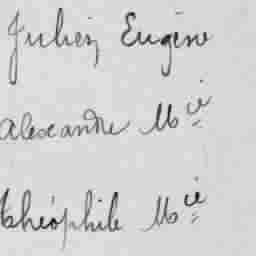 Julien Eugène
Alexandre Mcie
théophile Mcie